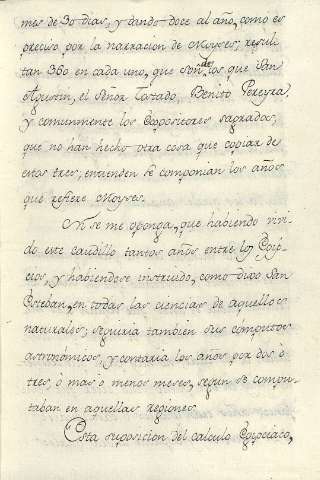 mes de 30 dias, y dando doce al año, como es
preciso por la narracion de Moyses; resul
tan 360 en cada uno, que son de los que San
Agustin, el Señor Tostado, Benito Pereyra,
y comunmente los Expositores sagrados,
que no han hecho otra cosa que copiar de
estos tres, entienden se componian los años
que refiere Moyses.
Ni se me oponga, que habiendo vivi
do este caudillo tantos años entre los Egip
cios, y habiendose instruido, como dixo San
Esteban, en todas las ciencias de aquellos
naturales; seguiria tambien sus computos
astronomicos, y contaria los años por dos ò
tres, ò mas ò menos meses, segun se compu
taban en aquellas regiones.
Esta suposicion del calculo Egipciaco,